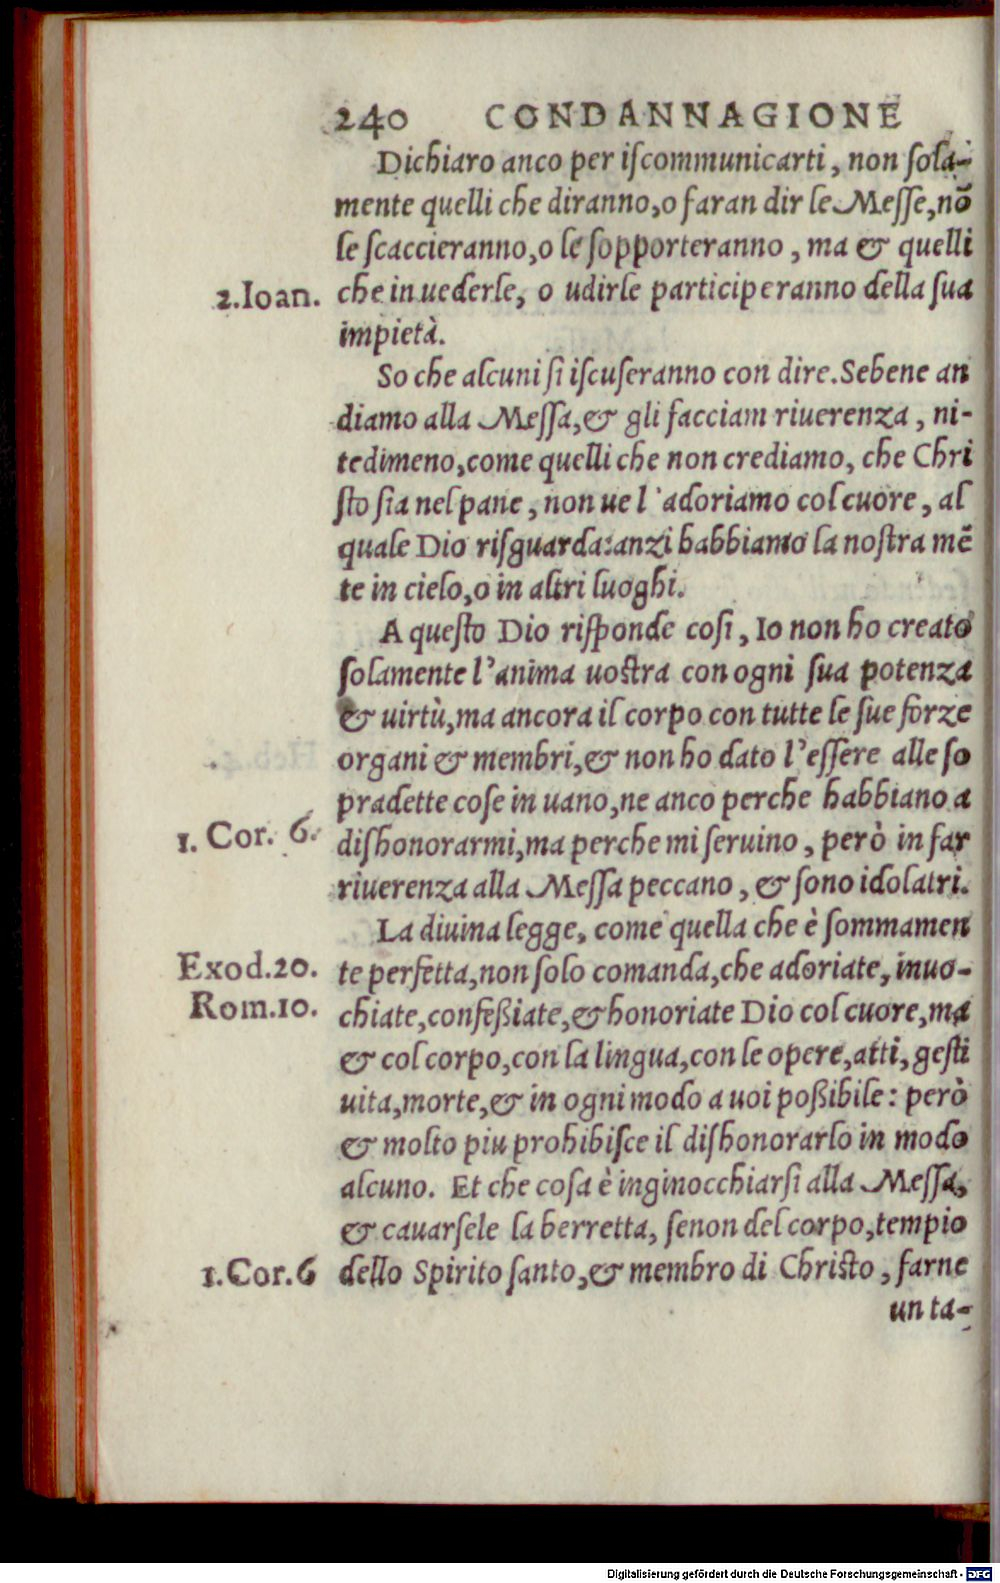 240 CONDANNAGIONE
Dichiaro anco per iſcommunicarti, non ſola-
mente quelli che diranno,o faran dir le Meſſe,nō
le ſcaccieranno,o le ſopporteranno, ma & quelli
2.Ioan. che in uederle, o udirle participeranno della ſua
impietà.
So che alcuni ſi iſcuſeranno con dire.Sebene an
diamo alla Meſſa,& gli facciam riuerenza, ni-
tedimeno,come quelli che non crediamo, che Chri
ſto ſia nel pane, non ue l'adoriamo col cuore, al
quale Dio riſguarda:anzi habbiamo la noſtra mē
te in cielo,o in altri luoghi.
A queſto Dio riſponde coſi, Io non ho creato
ſolamente l'anima uoſtra con ogni ſua potenza
& uirtù,ma ancora il corpo con tutte le ſue forze
organi & membri,& non ho dato l'eſſere alle ſo
pradette coſe in uano,ne anco perche habbiano a
1. Cor. 6. diſhonorarmi,ma perche mi ſeruino, però in far
riuerenza alla Meſſa peccano, & ſono idolatri.
La diuina legge, come quella che è ſommamen
Exod.20. te perfetta,non ſolo comanda,che adoriate, inuo-
Rom.10. chiate,confeßiate,& honoriate Dio col cuore,ma
& col corpo,con la lingua,con le opere,atti, geſti
uita,morte,& in ogni modo a uoi poßibile: però
& molto piu prohibiſce il diſhonorarlo in modo
alcuno. Et che coſa è inginocchiarſi alla Meſſa,
& cauarſele la berretta, ſenon del corpo,tempio
1.Cor.6 dello Spirito ſanto,& membro di Chriſto, farne
un ta-
Digitalisierung gefördert durch die Deutsche Forschungsgemeinschaft - DFG